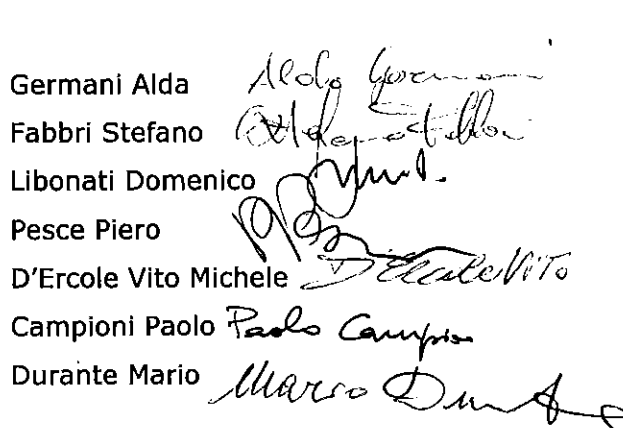 Germani Alda Alda Germani
Fabbri Stefano Stefano Fabbri
Libonati Domenico
Pesce Piero
D'Ercole Vito Michele D'Ercole Vito
Campioni Paolo Paolo Campioni
Durante Mario Mario Durante